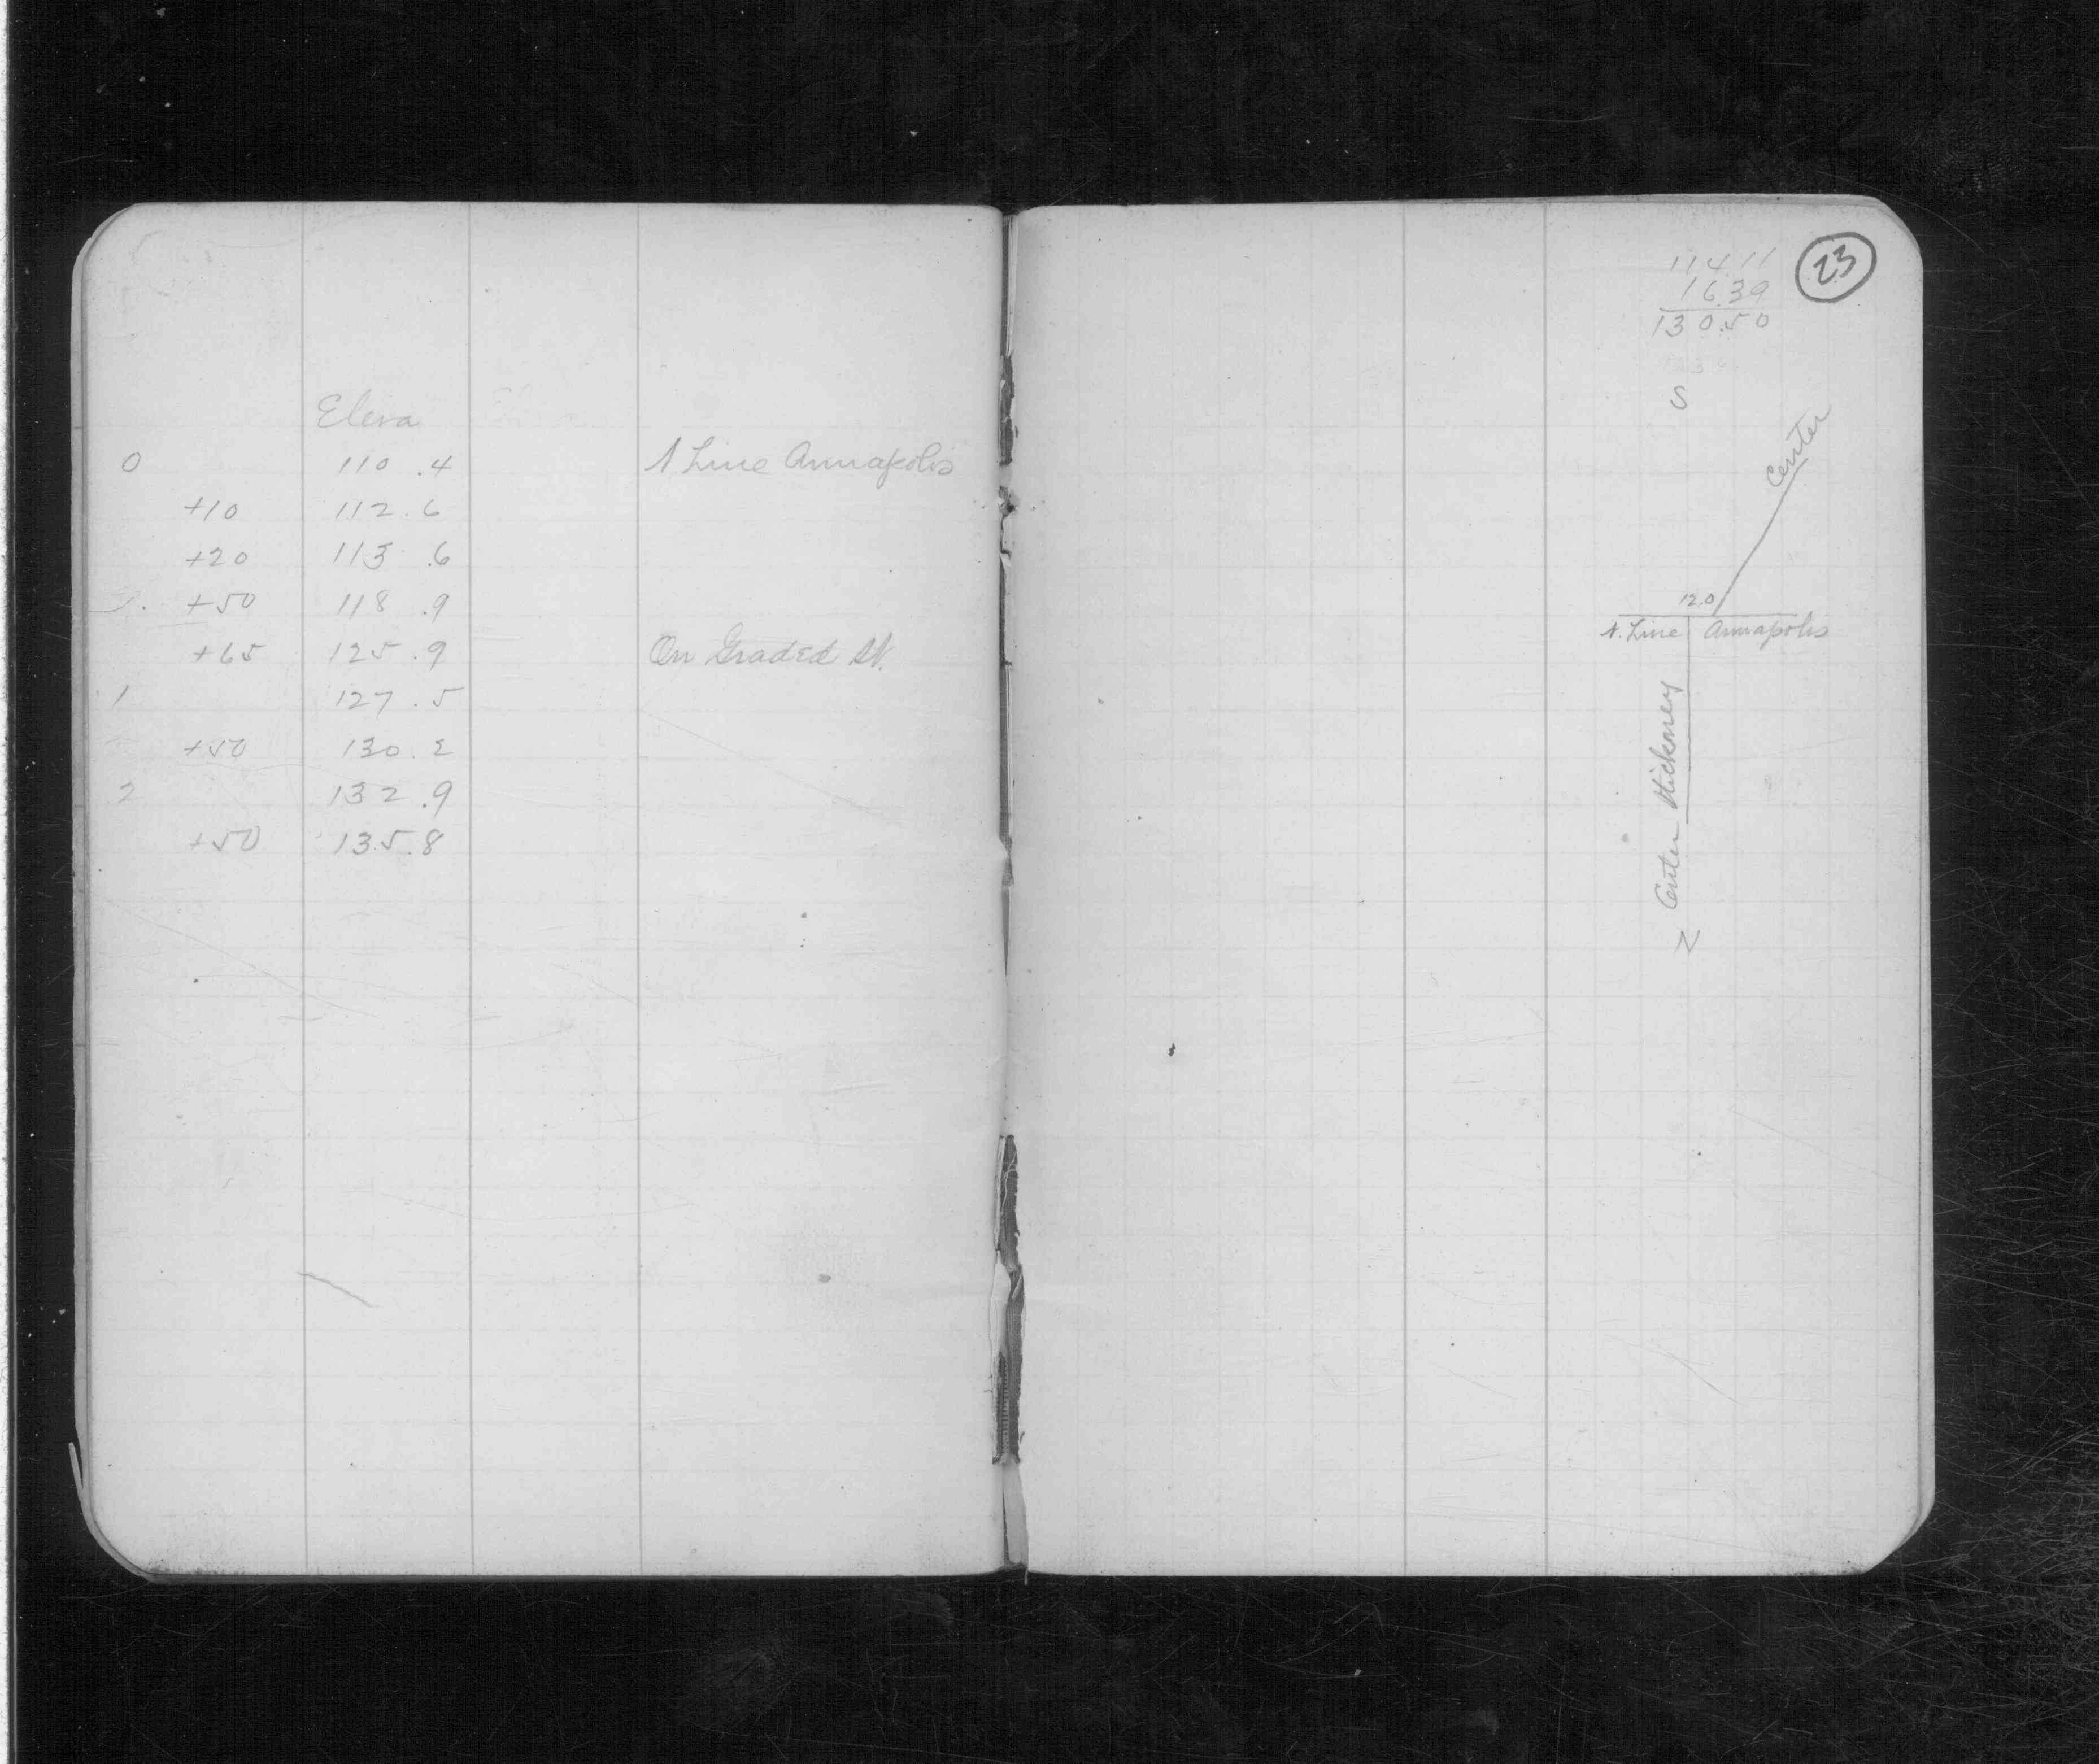 Eleva
0 110.4 N Line Annapolis
+10 112.6
+20 113.6
+50 118.9
+65 125.9 On Graded St.
1 127.5
+50 130.2
2 132.9
+50 135.8
23
114.11
16.39
130.50
S
Center
12.0
N. Line Annapolis
Center Stickney
N